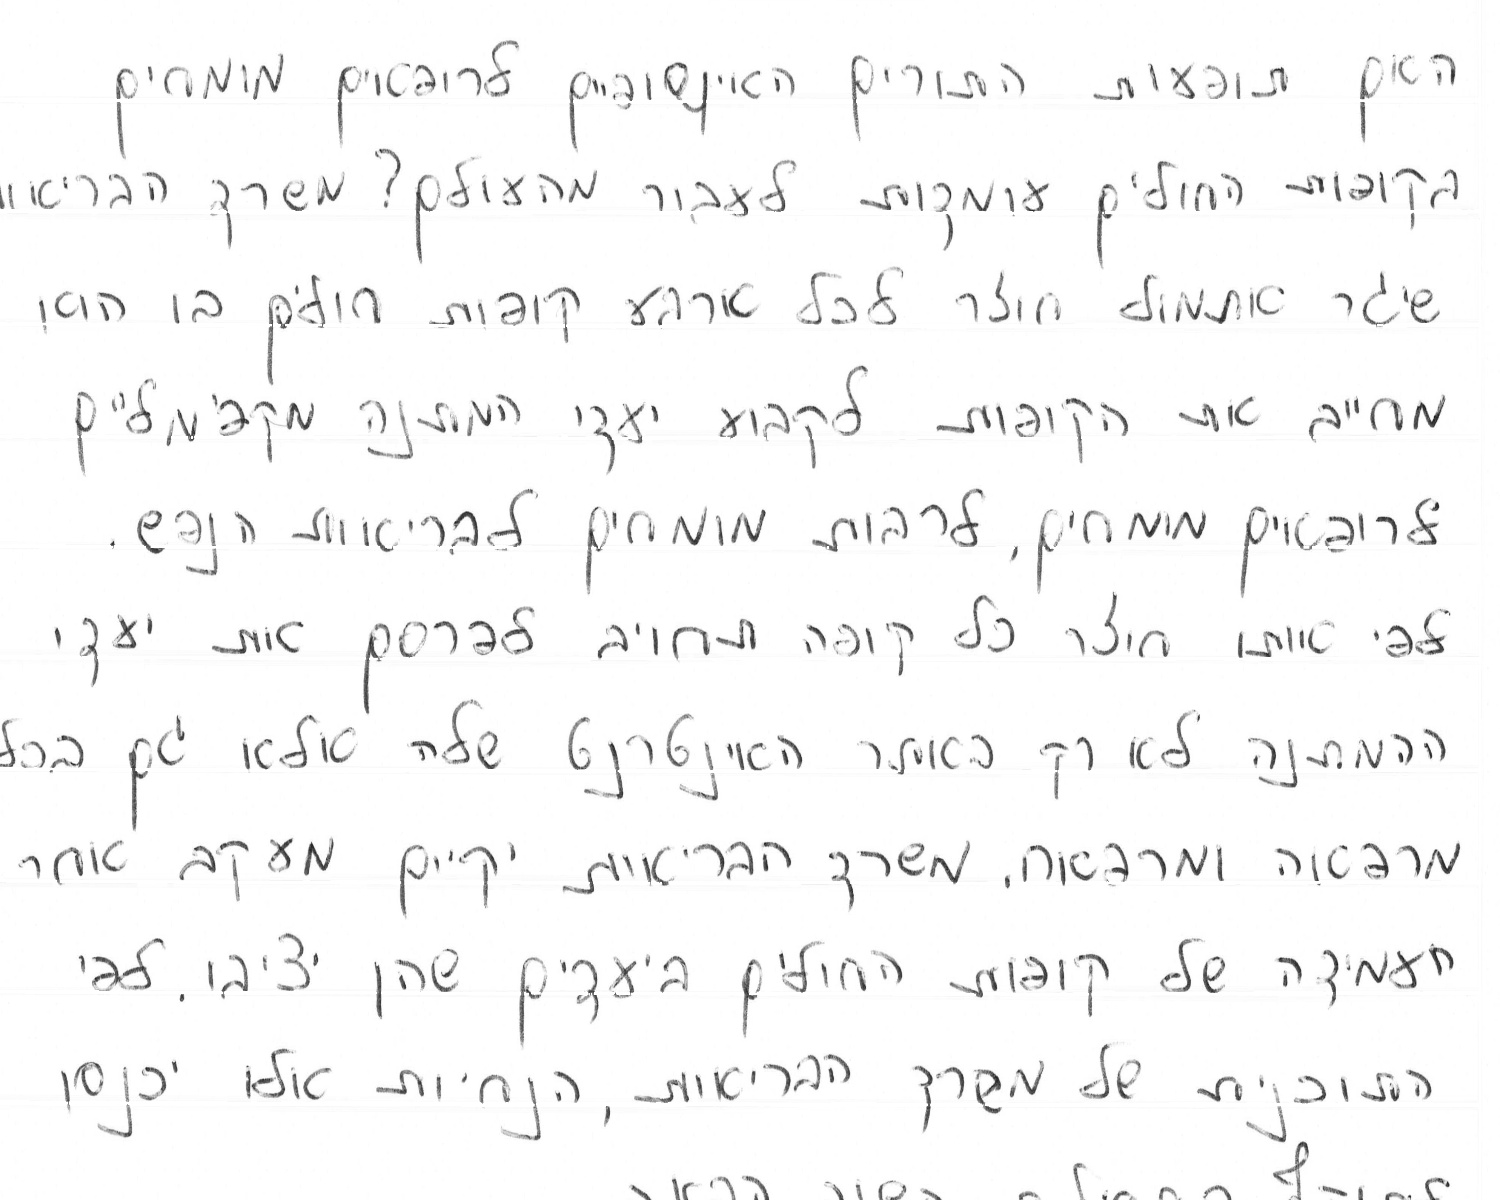 האם תופעות התורים האינסופיים לרופאים מומחים
בקופות החולים עומדות לעבור מהעולם? משרד הבריאות
שיגר אתמול חוזר לכל ארבע קופות חולים בו הוא
מחייב את הקופות לקבוע יעדי המתנה מקסימליים
לרופאים מומחים, לרבות מומחים לבריאות הנפש.
לפי אותו חוזר כל קופה תחויב לפרסם את יעדי
ההמתנה לא רק באתר האינטרנט שלה אלא גם בכל
מרפאה ומרפאה. משרד הבריאות יקיים מעקב אחר
העמידה של קופות החולים ביעדים שהן יציבו. לפי
התוכנית של משרד הבריאות, הנחיות אלו יכנסו